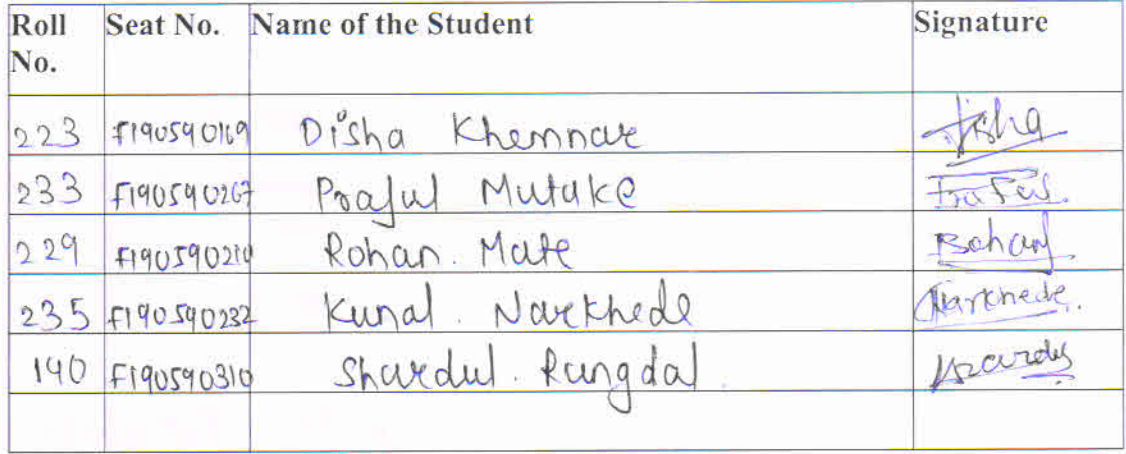 Roll No. Seat No. Name of the Student Signature
223 F190590169 Disha Khemnar Disha
233 F190590267 Praful Mutake Praful
229 F190590210 Rohan. Mate Rohan
235 F190590232 Kunal. Narkhede Narkhede.
140 F190590310 Shardul. Rangdal